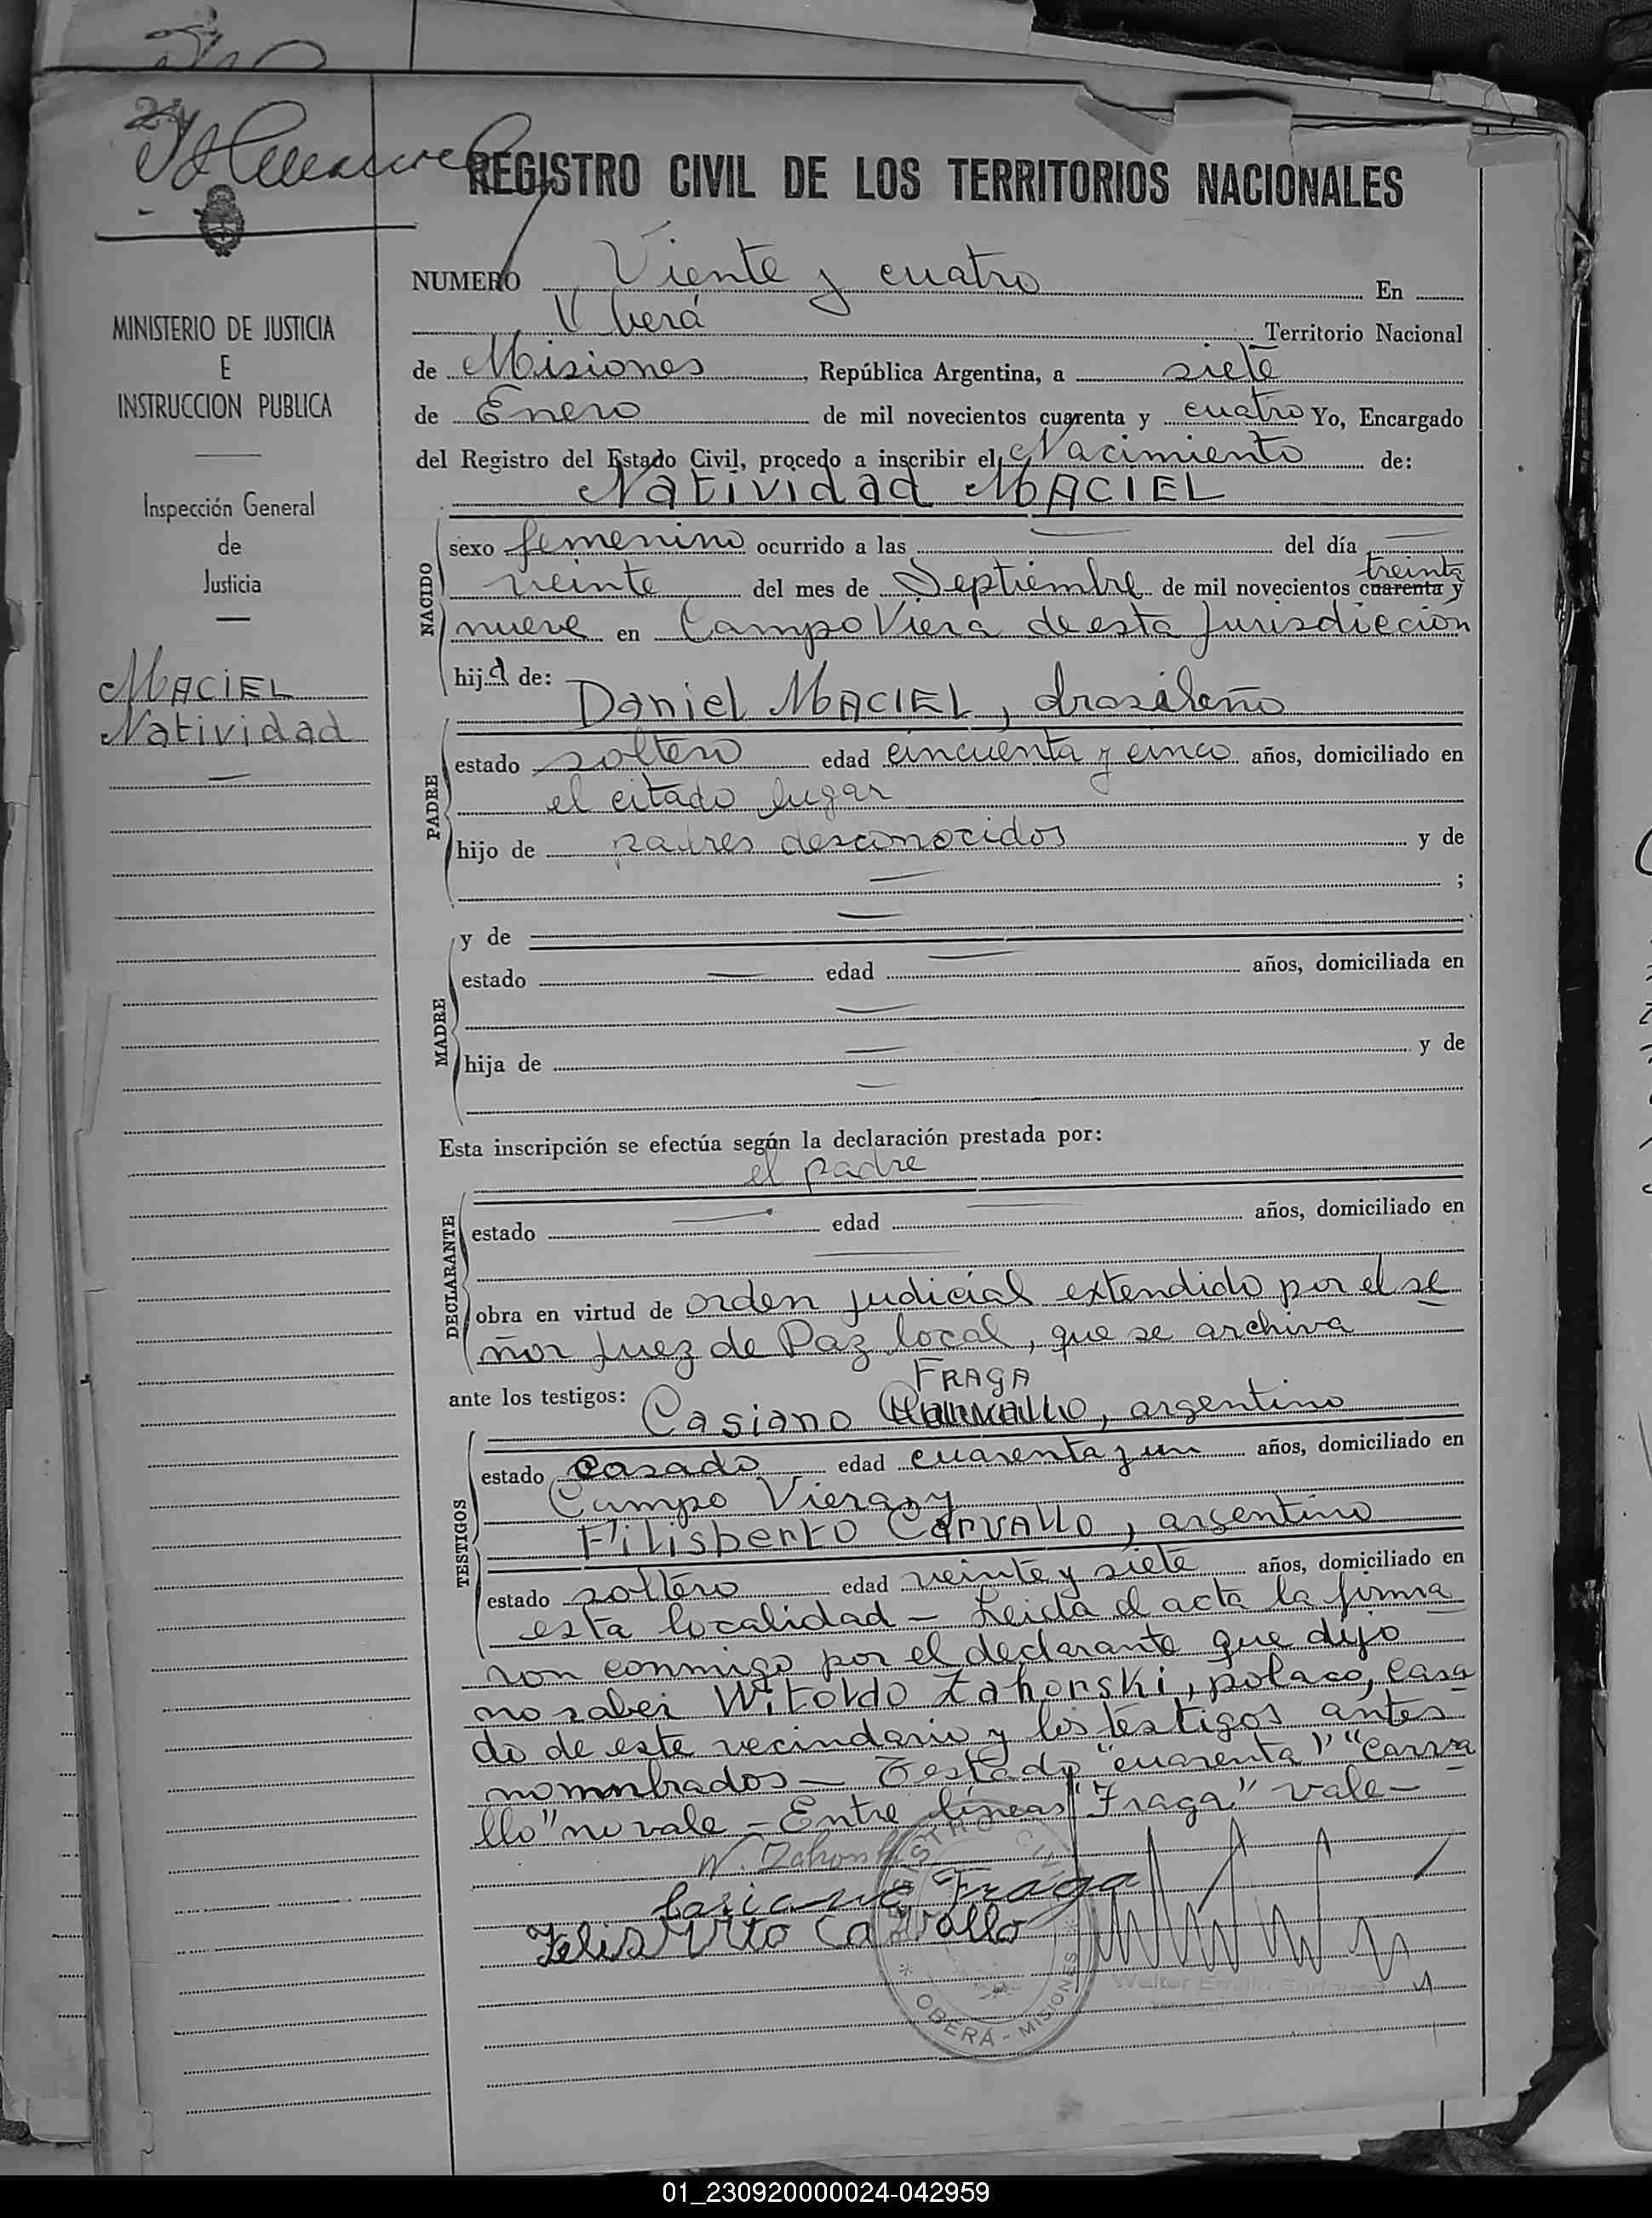 24
REGISTRO CIVIL DE LOS TERRITORIOS NACIONALES
NUMERO Viente y cuatro En
Vberá Territorio Nacional
de Misiones, República Argentina, a siete
de Enero de mil novecientos cuarenta y cuatro Yo, Encargado
del Registro del Estado Civil, procedo a inscribir el Nacimiento de:
Natividad MACIEL
MINISTERIO DE JUSTICIA
E
INSTRUCCION PUBLICA
Inspección General
de
Justicia
MACIEL
Natividad
NACIDO
sexo femenino ocurrido a las — del día —
treinta
veinte del mes de Septiembre de mil novecientos cuarenta y
nueve en Campo Viera de esta Jurisdiccion
hija de:
Daniel MACIEL, brasileño
PADRE
estado soltero edad cincuenta y cinco años, domiciliado en
el citado lugar
hijo de padres desconocidos y de
— ;
MADRE
y de —
estado — edad — años, domiciliada en
—
hija de — y de
—
Esta inscripción se efectúa según la declaración prestada por:
el padre
DECLARANTE
estado — edad — años, domiciliado en
—
obra en virtud de orden judicial extendido por el se
ñor Juez de Paz local, que se archiva
FRAGA
ante los testigos: Casiano Carvallo, argentino
TESTIGOS
estado casado edad cuarenta y un años, domiciliado en
Campo Viera y
Filisberto Carvallo, argentino
estado soltero edad veinte y siete años, domiciliado en
esta localidad - Leida el acta la firma
ron conmigo por el declarante que dijo
no saber Witoldo Zahorski, polaco, casa
do de este vecindario y los testigos antes
nombrados - Testado "cuarenta" "Carva
llo" no vale - Entre lineas "Fraga" vale -
W. Zahorski
Casiano Fraga
Felisbirto Carvallo
REGISTRO CIVIL
* OBERÁ - MISIONES *
Walter Emilio
01_230920000024-042959